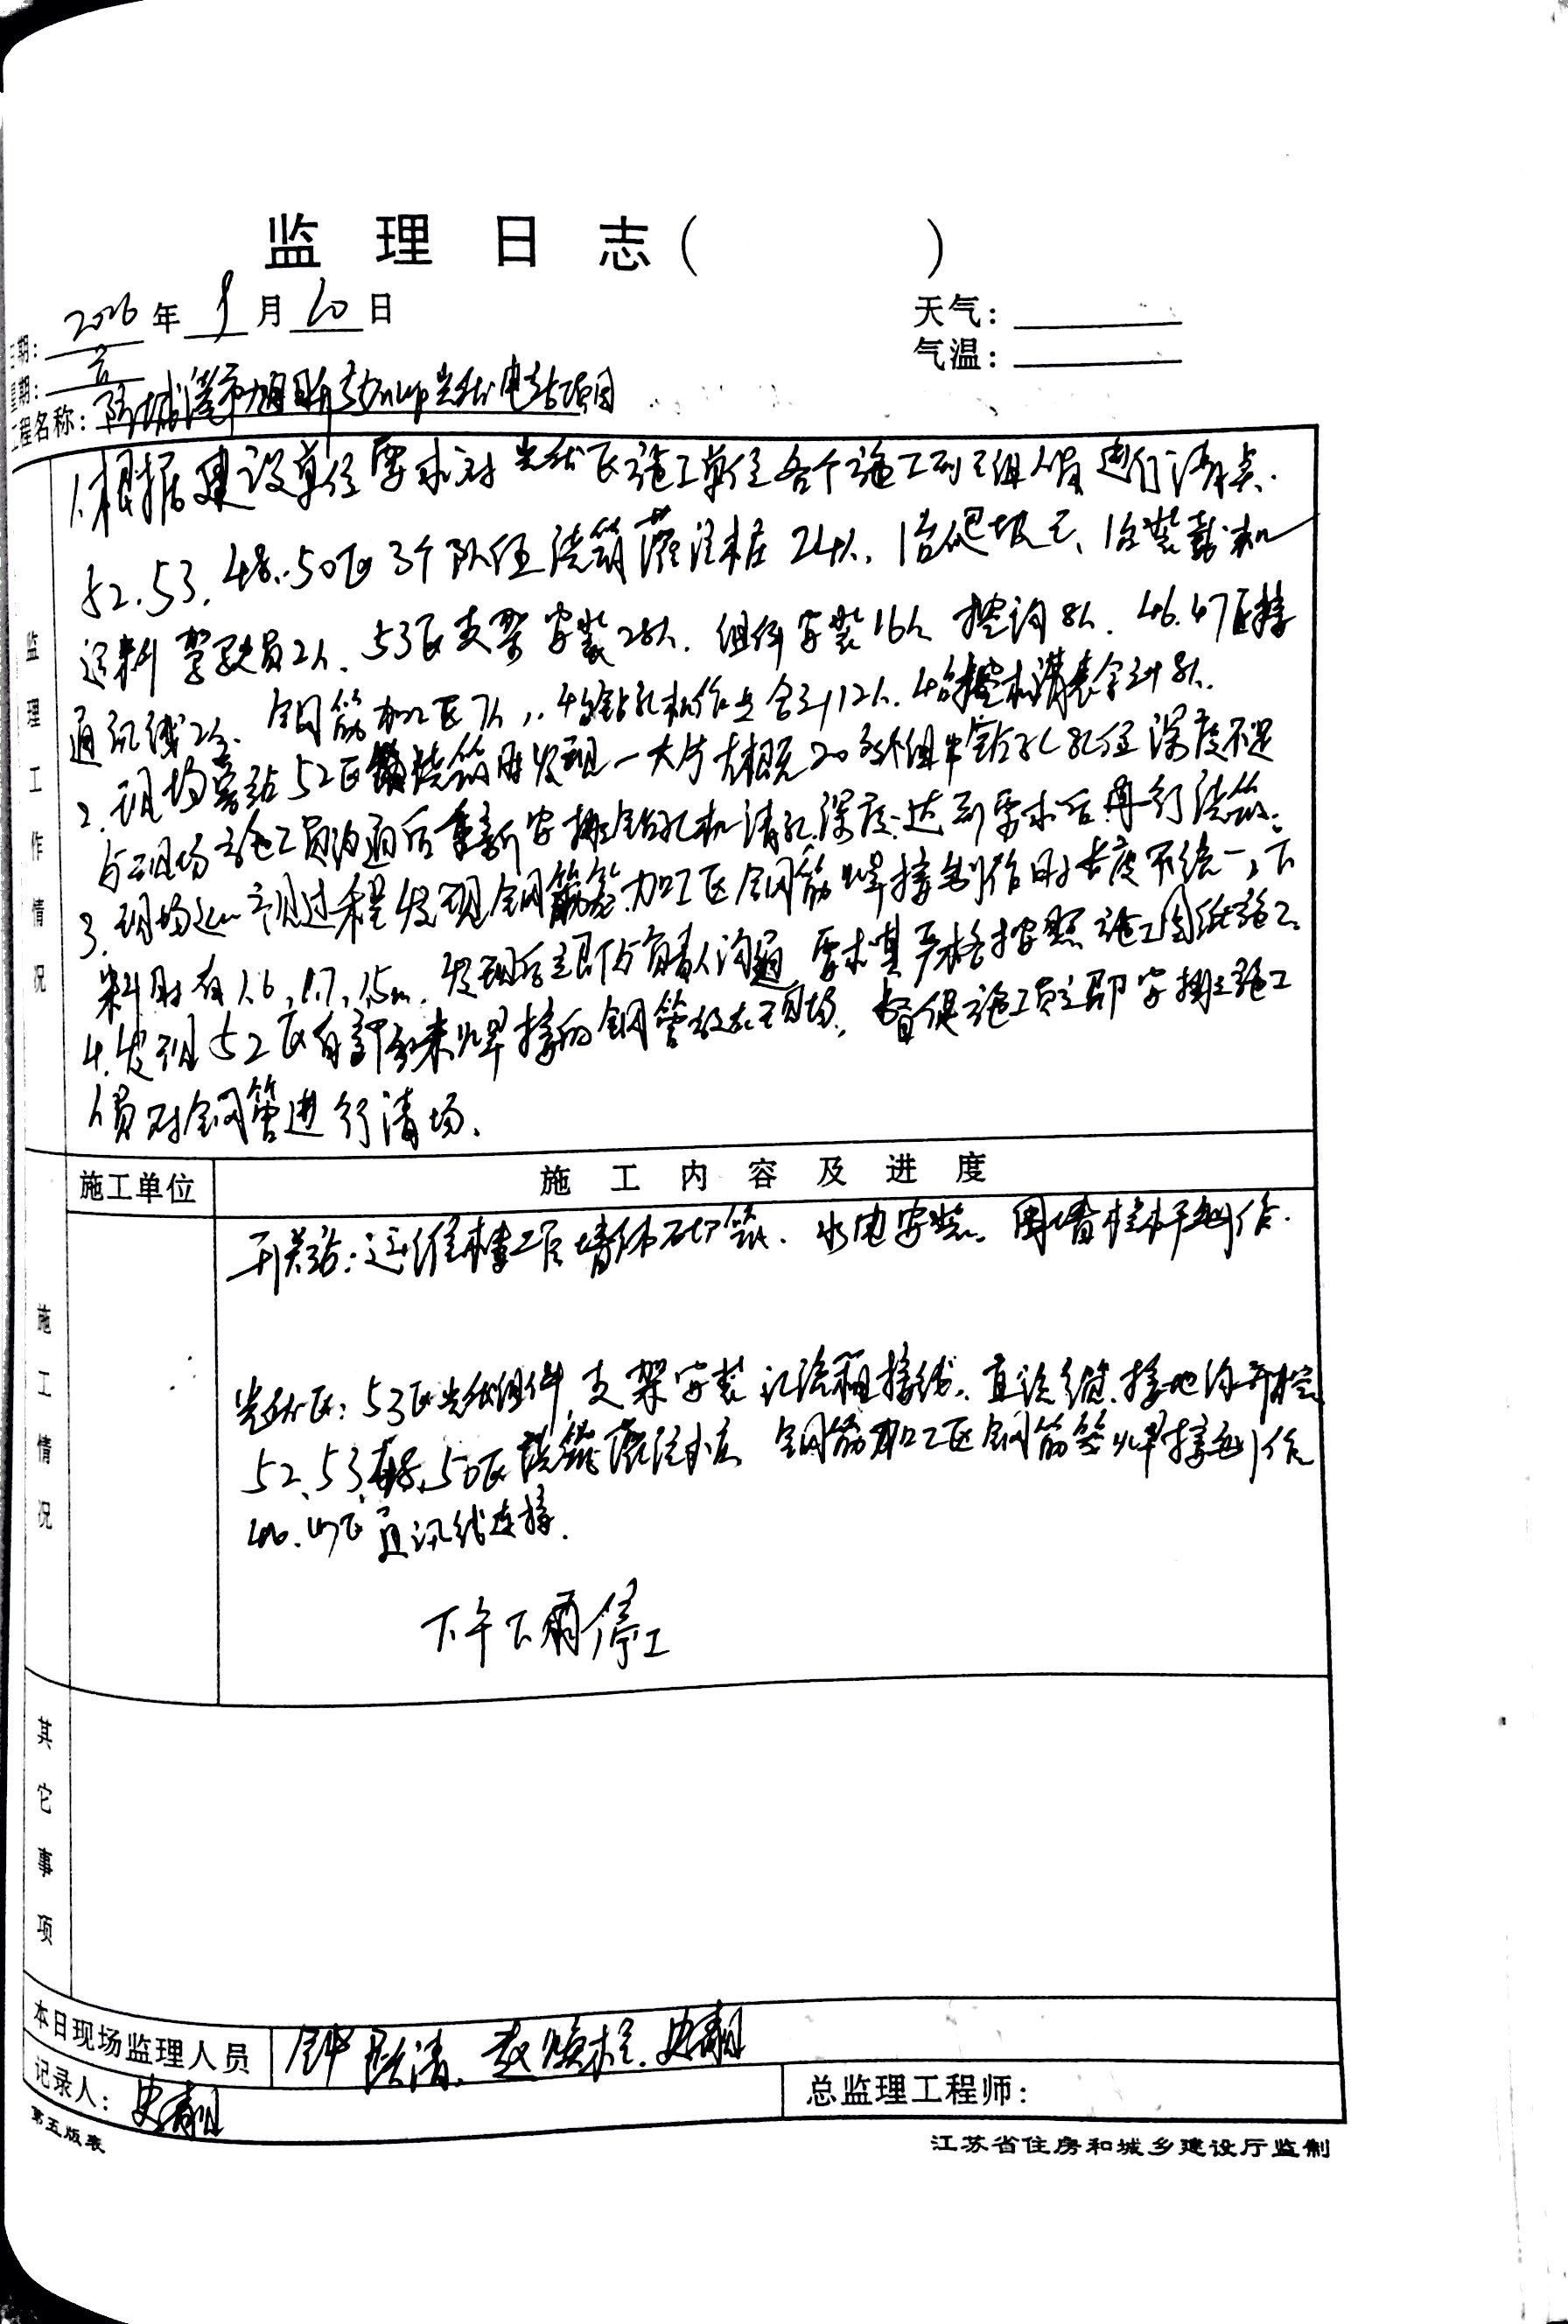 监理日志（ ）
日期： 年 月 10 日
天气：
星期：
气温：
工程名称：防城港市 光伏电站项目
1.根据建设单位要求对光伏区施工单位各个施工班组人员进行清点.
52.53.48.50区3个队伍浇筑灌注桩24人.1台爬坡王、1台装载机
送料驾驶员2人.53区支架安装28人.组件安装16人 挖沟8人.46.47区接
通讯线2人、钢筋加工区7人,.4台钻孔机作业 12人.4台挖机 8人.
2.现场旁站52区浇筑时发现一大片大概充20多个组串钻孔孔位深度不足
与现场施工员沟通后重新安排钻孔机清孔.深度达到要求后再行浇筑.
3.现场巡视过程发现钢筋笼加工区钢筋焊接制作时长度不统一,下
料时有1.6,1.7,1.5m.发现后立即与负责人沟通 要求其严格按照施工图纸施工.
4.发现52区有部分未焊接的钢管放在现场,督促施工员立即安排施工
人员对钢管进行清场.
监理工作情况
施工单位
施工内容及进度
开关站：运维楼工作墙体砌筑.水电安装.围墙栏杆制作.
光伏区：53区光伏组件,支架安装 汇流箱接线.直流缆.接地沟开挖
52、53、48、50区浇筑灌注桩 钢筋加工区钢筋笼焊接制作
46.47区通讯线连接.
下午下雨停工
施工情况
其它事项
本日现场监理人员
记录人：
总监理工程师：
第五版表
江苏省住房和城乡建设厅监制